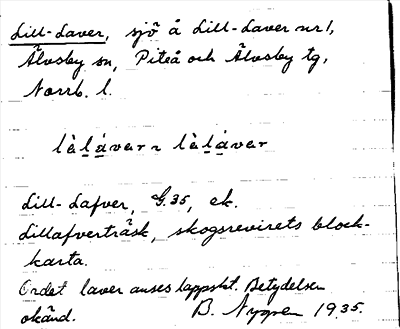 Lill-Laver, sjö å Lill-Laver nr 1,
Älvsby sn, Piteå och Älvsby tg,
Norrb. l.
lèláver ~ lèláver
Lill-Lafver, G. 35, ek.
Lillafverträsk, skogsrevirets block-
karta.
Ordet laver anses lappskt. Betydelsen
okänd. B. Nygren 1935.